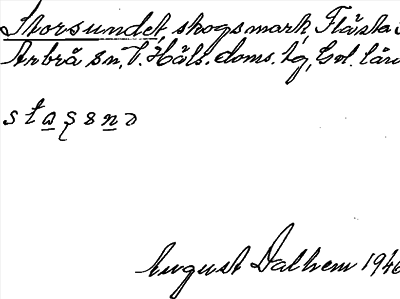 Storsundet, skogsmark, Flästa
Arbrå sn, V. Häls. doms. tg, Gvl. län
August Dalhem 1946